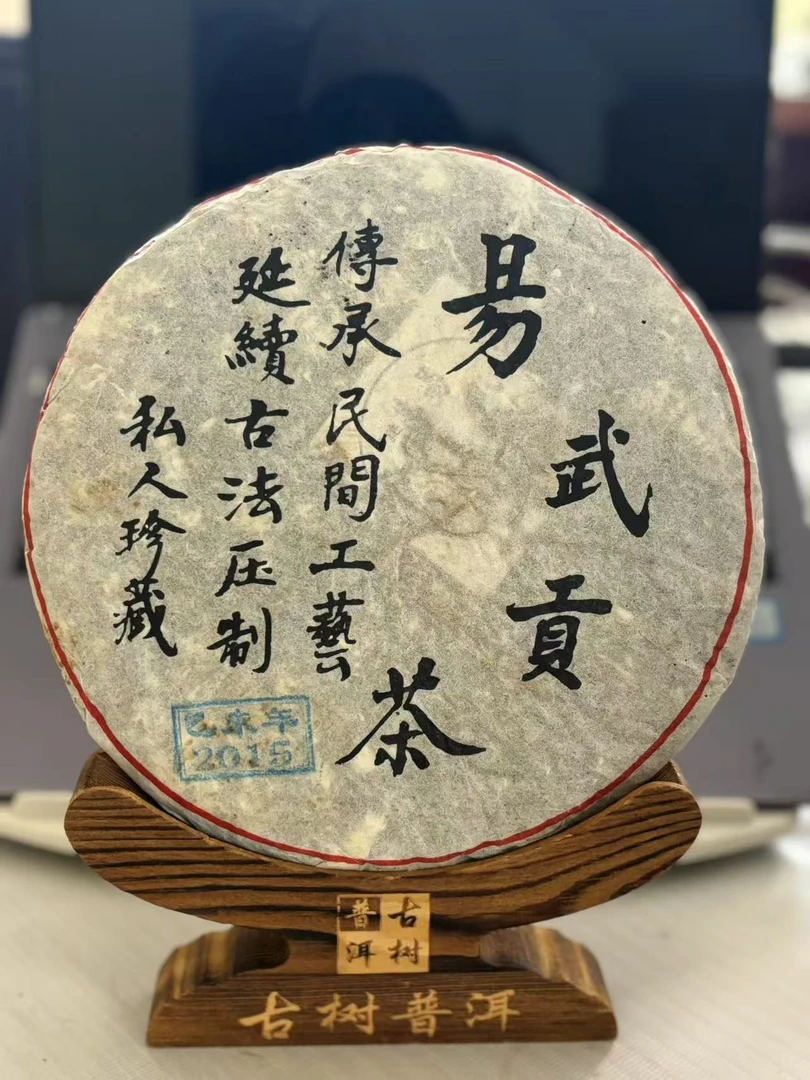 易武貢茶
傳承民間工藝
延續古法压制
私人珍藏
乙未年
2015
古树
普洱
古树普洱